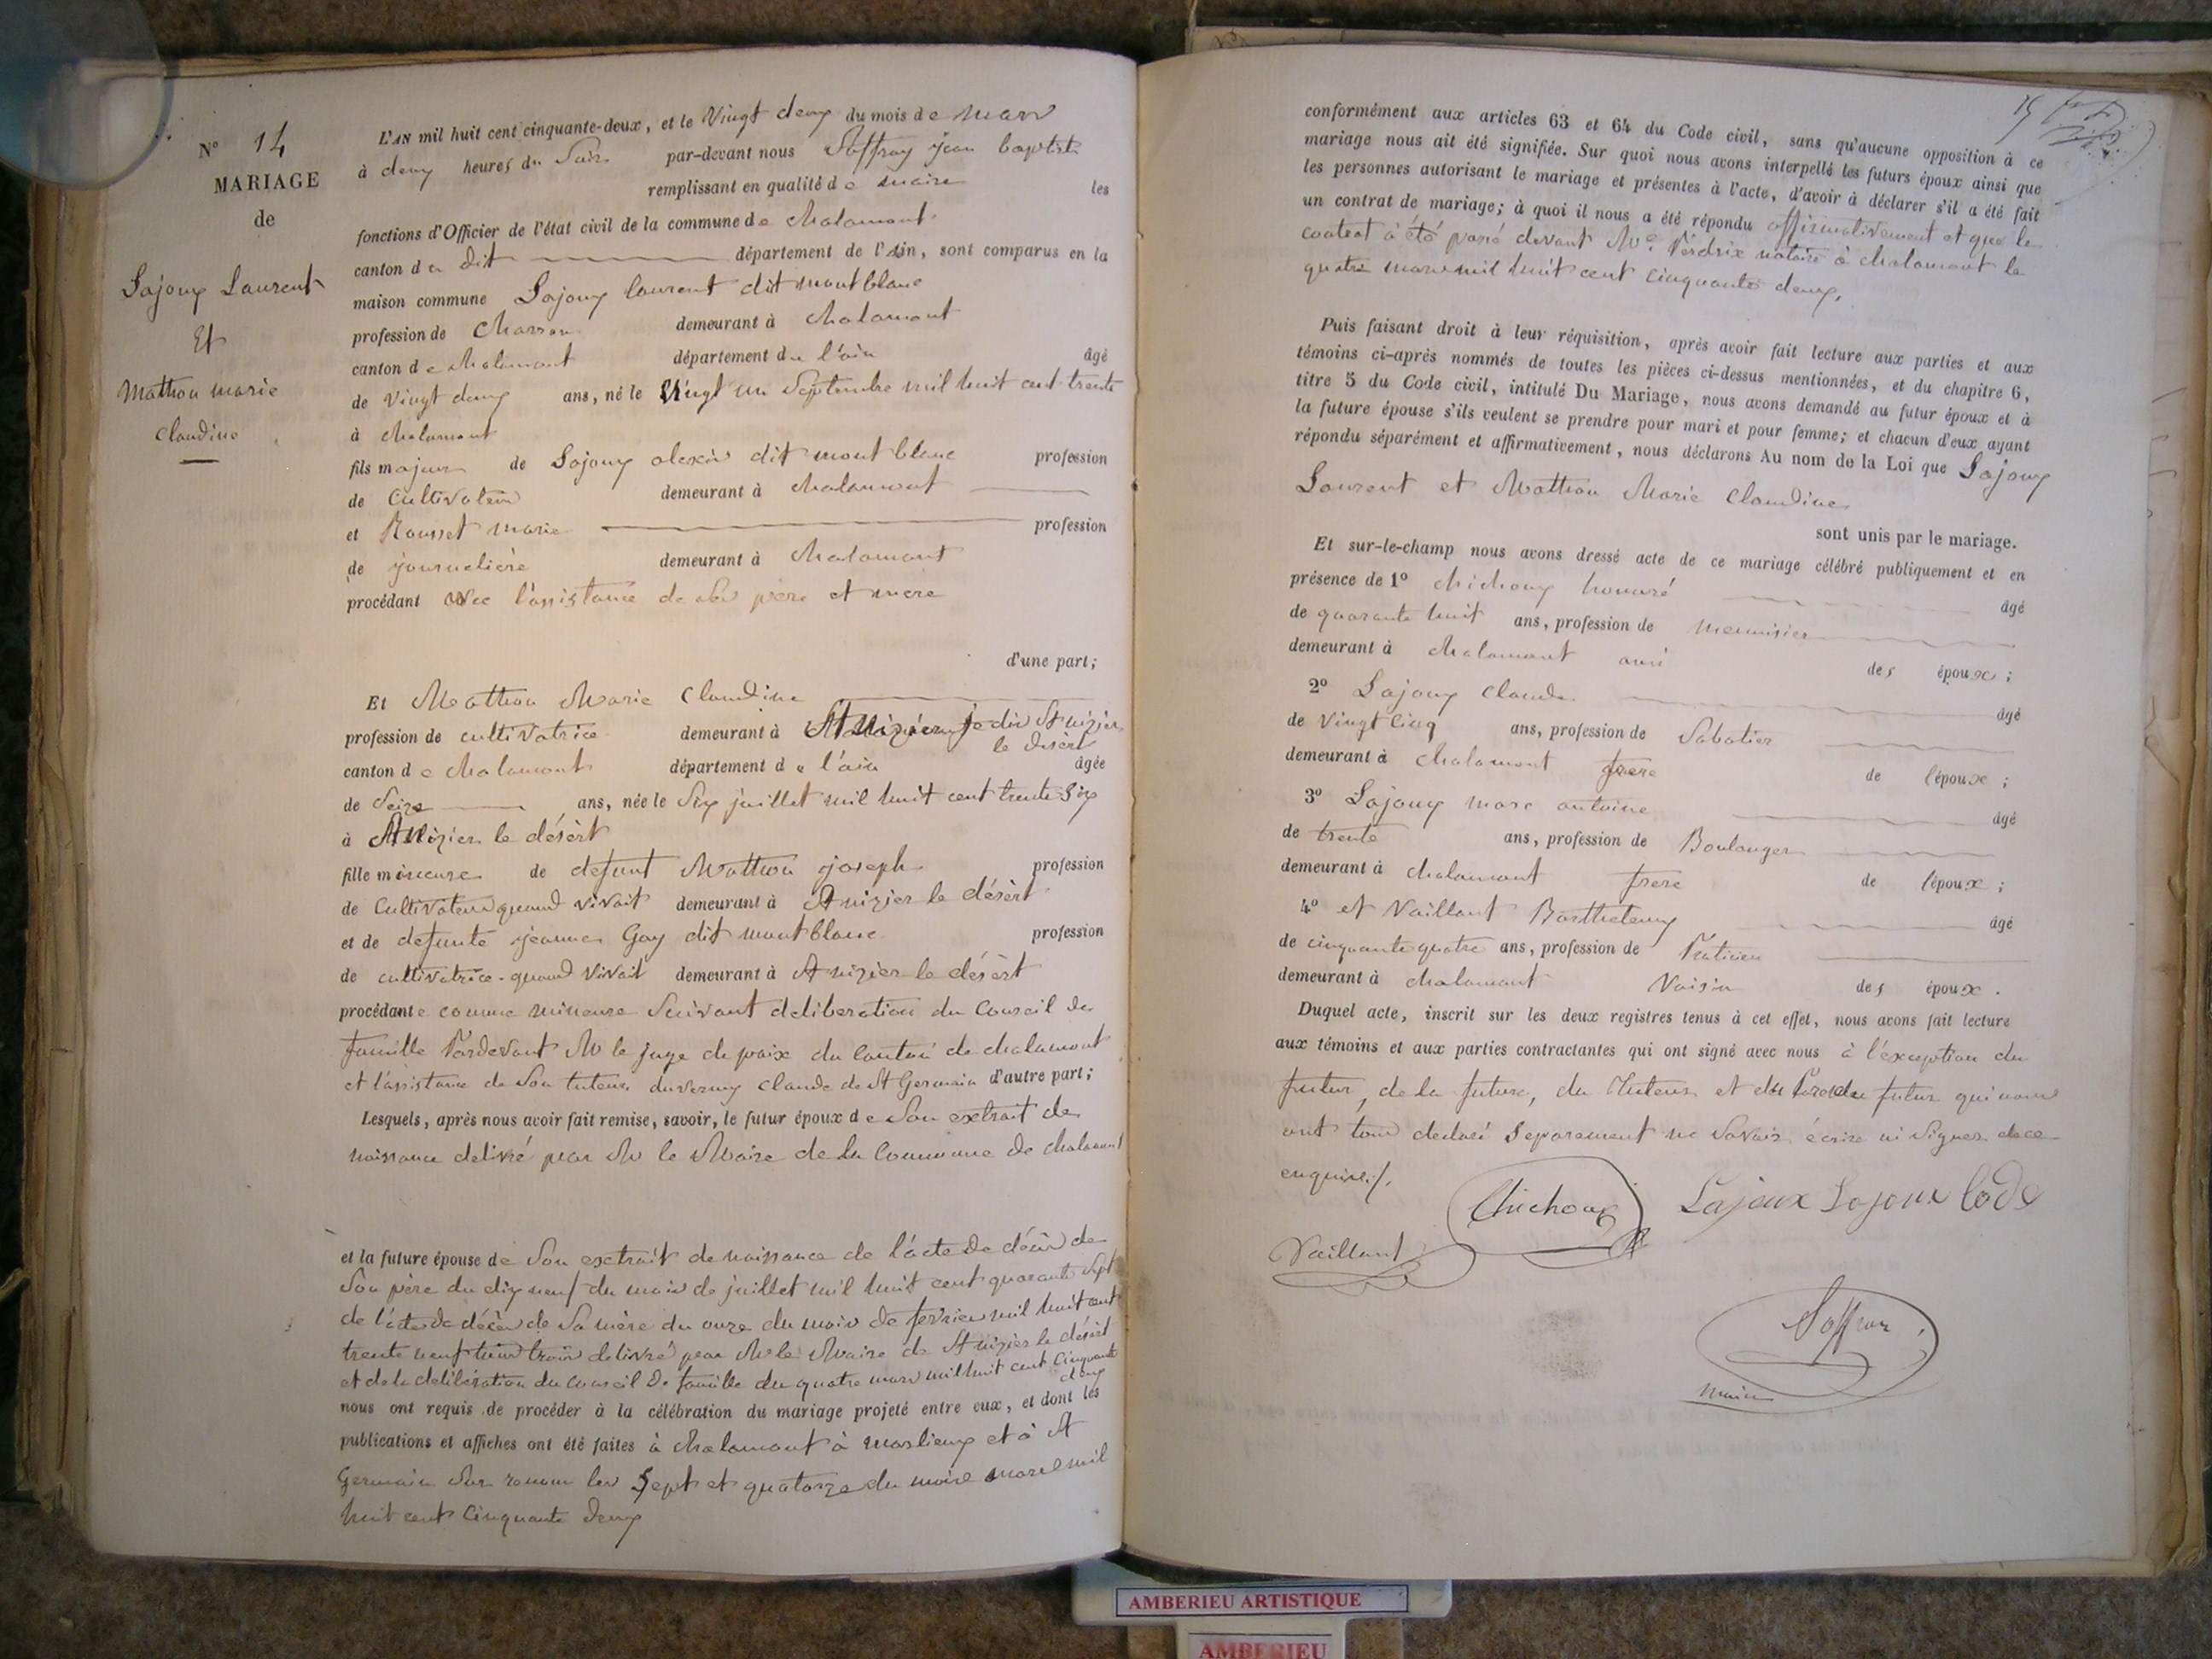 N° 14
MARIAGE
de
Lajoux Laurent
Et
Mathon marie
Claudine
L'AN mil huit cent cinquante-deux, et le Vingt deux du mois de mars
à deux heures du Soir par-devant nous Saffray jean baptiste
remplissant en qualité de maire les
fonctions d'Officier de l'état civil de la commune de chalamont
canton du dit département de l'Ain, sont comparus en la
maison commune Lajoux laurent dit mont blanc
profession de Charron demeurant à chalamont
canton de chalamont département de l'ain âgé
de Vingt deux ans, né le Vingt un Septembre mil huit cent trente
à chalamont
fils majeur de Lajoux alexis dit mont blanc profession
de Cultivateur demeurant à chalamont
et Rousset marie profession
de journalière demeurant à chalamont
procédant avec l'assistance de ses père et mère
d'une part;
Et Mathon Marie Claudine
profession de cultivatrice demeurant à St Nizier je dis St nizier
le désèrt
canton de chalamont département de l'ain âgée
de Seize ans, née le Six juillet mil huit cent trente Six
à St Nizier le désèrt
fille mineure de defunt Mathon joseph profession
de Cultivateur quand vivait demeurant à St nizier le désèrt
et de defunte jeanne Gay dit mont blanc profession
de cultivatrice quand vivait demeurant à St nizier le désèrt
procédante comme mineure Suivant deliberation du Conseil de
famille Pardevant Mr le juge de paix du Canton de chalamont
et l'assistance de Son tuteur claude de St Germain d'autre part;
Lesquels, après nous avoir fait remise, savoir, le futur époux de Son extrait de
naissance delivré par Mr le Maire de la Commune de chalamont
et la future épouse de Son extrait de naissance de l'acte de décès de
Son père du dix neuf du mois de juillet mil huit cent quarante Sept
de l'acte de décès de Sa mère du onze du mois de fevrier mil huit cent
trente neuf tous trois delivré par Mr le Maire de St nizier le désèrt
et de la deliberation du Conseil de famille du quatre mars mil huit cent Cinquante
deux
nous ont requis de procéder à la célébration du mariage projeté entre eux, et dont les
publications et affiches ont été faites à chalamont à marlieux et à St
Germain Sur renom les Sept et quatorze du mois mars mil
huit cent Cinquante deux
conformément aux articles 63 et 64 du Code civil, sans qu'aucune opposition à ce
mariage nous ait été signifiée. Sur quoi nous avons interpellé les futurs époux ainsi que
les personnes autorisant le mariage et présentes à l'acte, d'avoir à déclarer s'il a été fait
un contrat de mariage; à quoi il nous a été répondu affirmativement et que le
contrat à été passé devant Me Perdrix notaire à chalamont le
quatre mars mil huit cent cinquante deux.
Puis faisant droit à leur réquisition, après avoir fait lecture aux parties et aux
témoins ci-après nommés de toutes les pièces ci-dessus mentionnées, et du chapitre 6,
titre 5 du Code civil, intitulé Du Mariage, nous avons demandé au futur époux et à
la future épouse s'ils veulent se prendre pour mari et pour femme; et chacun d'eux ayant
répondu séparément et affirmativement, nous déclarons Au nom de la Loi que Lajoux
Laurent et Mathon Marie Claudine
sont unis par le mariage.
Et sur-le-champ nous avons dressé acte de ce mariage célébré publiquement et en
présence de 1° chichoux honoré âgé
de quarante huit ans, profession de menuisier
demeurant à chalamont ami des époux;
2° Lajoux Claude âgé
de Vingt Cinq ans, profession de Sabotier
demeurant à chalamont frere de l'époux;
3° Lajoux marc antoine âgé
de trente ans, profession de Boulanger
demeurant à chalamont frere de l'époux;
4° et Vaillant Barthelemy âgé
de cinquante quatre ans, profession de Praticien
demeurant à chalamont Voisin des époux.
Duquel acte, inscrit sur les deux registres tenus à cet effet, nous avons fait lecture
aux témoins et aux parties contractantes qui ont signé avec nous à l'exception du
futur, de la future, du Tuteur et du Père du futur qui nous
ont tous declaré Separement ne Savoir écrire ni Signer de ce
enquis./.
Chichoux Lajoux Lajoux Code
Vaillant
Saffray
maire
AMBERIEU ARTISTIQUE
AMBERIEU